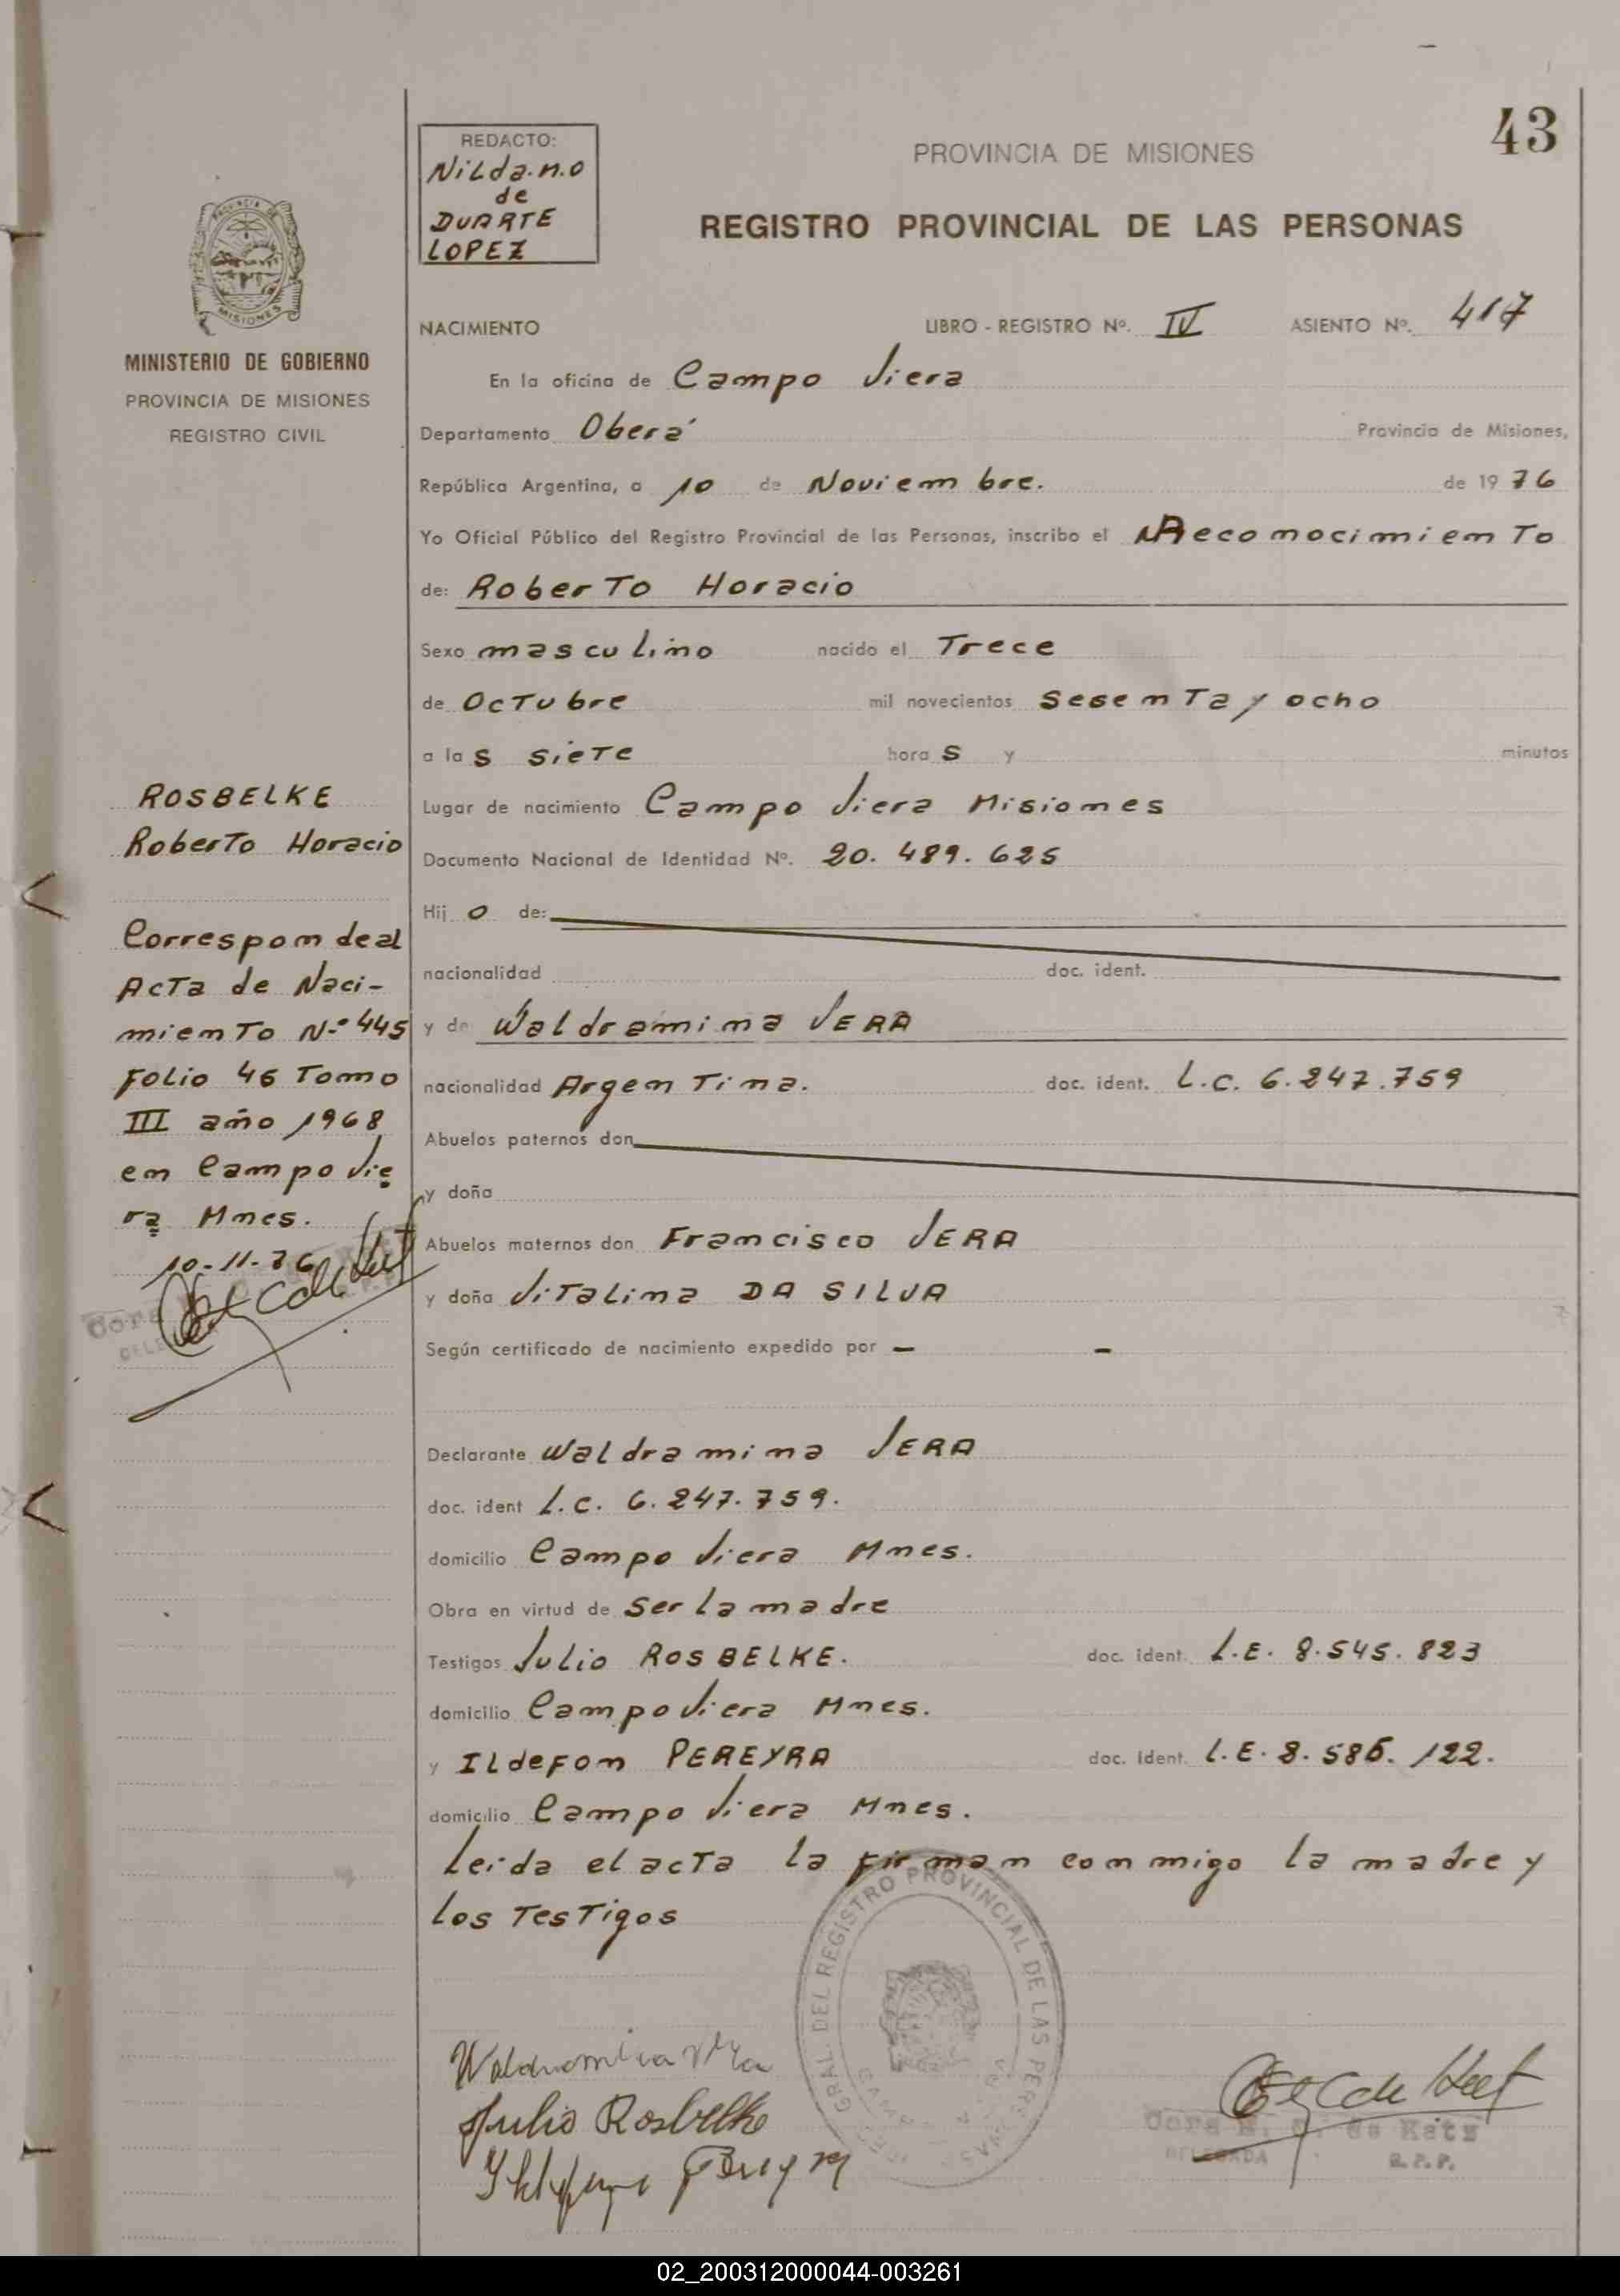 43
REDACTO:
Nilda.n.o
de
DUARTE
LOPEZ
PROVINCIA DE MISIONES
REGISTRO PROVINCIAL DE LAS PERSONAS
PROVINCIA DE
MISIONES
MINISTERIO DE GOBIERNO
PROVINCIA DE MISIONES
REGISTRO CIVIL
NACIMIENTO LIBRO - REGISTRO Nº. IV ASIENTO Nº. 417
En la oficina de Campo Viera
Departamento Oberá Provincia de Misiones,
República Argentina, a 10 de Noviembre. de 1976
Yo Oficial Público del Registro Provincial de las Personas, inscribo el Reconocimiento
de: Roberto Horacio
Sexo masculino nacido el Trece
de Octubre mil novecientos sesenta y ocho
a las siete horas y minutos
Lugar de nacimiento Campo Viera Misiones
Documento Nacional de Identidad Nº. 20.489.625
Hijo de:
nacionalidad doc. ident.
y de Waldramina VERA
nacionalidad Argentina. doc. ident. L.C. 6.247.759
Abuelos paternos don
y doña
Abuelos maternos don Francisco VERA
y doña Vitalina DA SILVA
Según certificado de nacimiento expedido por - -
Declarante Waldramina VERA
doc. ident L.C. 6.247.759.
domicilio Campo Viera Mnes.
Obra en virtud de ser la madre
Testigos Julio ROSBELKE. doc. ident. L.E. 8.545.823
domicilio Campo Viera Mnes.
y Ildefon PEREYRA doc. ident. L.E. 8.586.122.
domicilio Campo Viera Mnes.
Leida el acta la firman conmigo la madre y
los testigos
ROSBELKE
Roberto Horacio
Corresponde al
Acta de Naci-
miento N.º 445
Folio 46 Tomo
III año 1968
en Campo Vie
ra Mnes.
10-11-76
Cora
DELE
GRAL. DEL REGISTRO PROVINCIAL DE LAS PERSONAS
Julio Rosbelke
Cora E. de Katz
DELEGADA R.P.P.
02_200312000044-003261